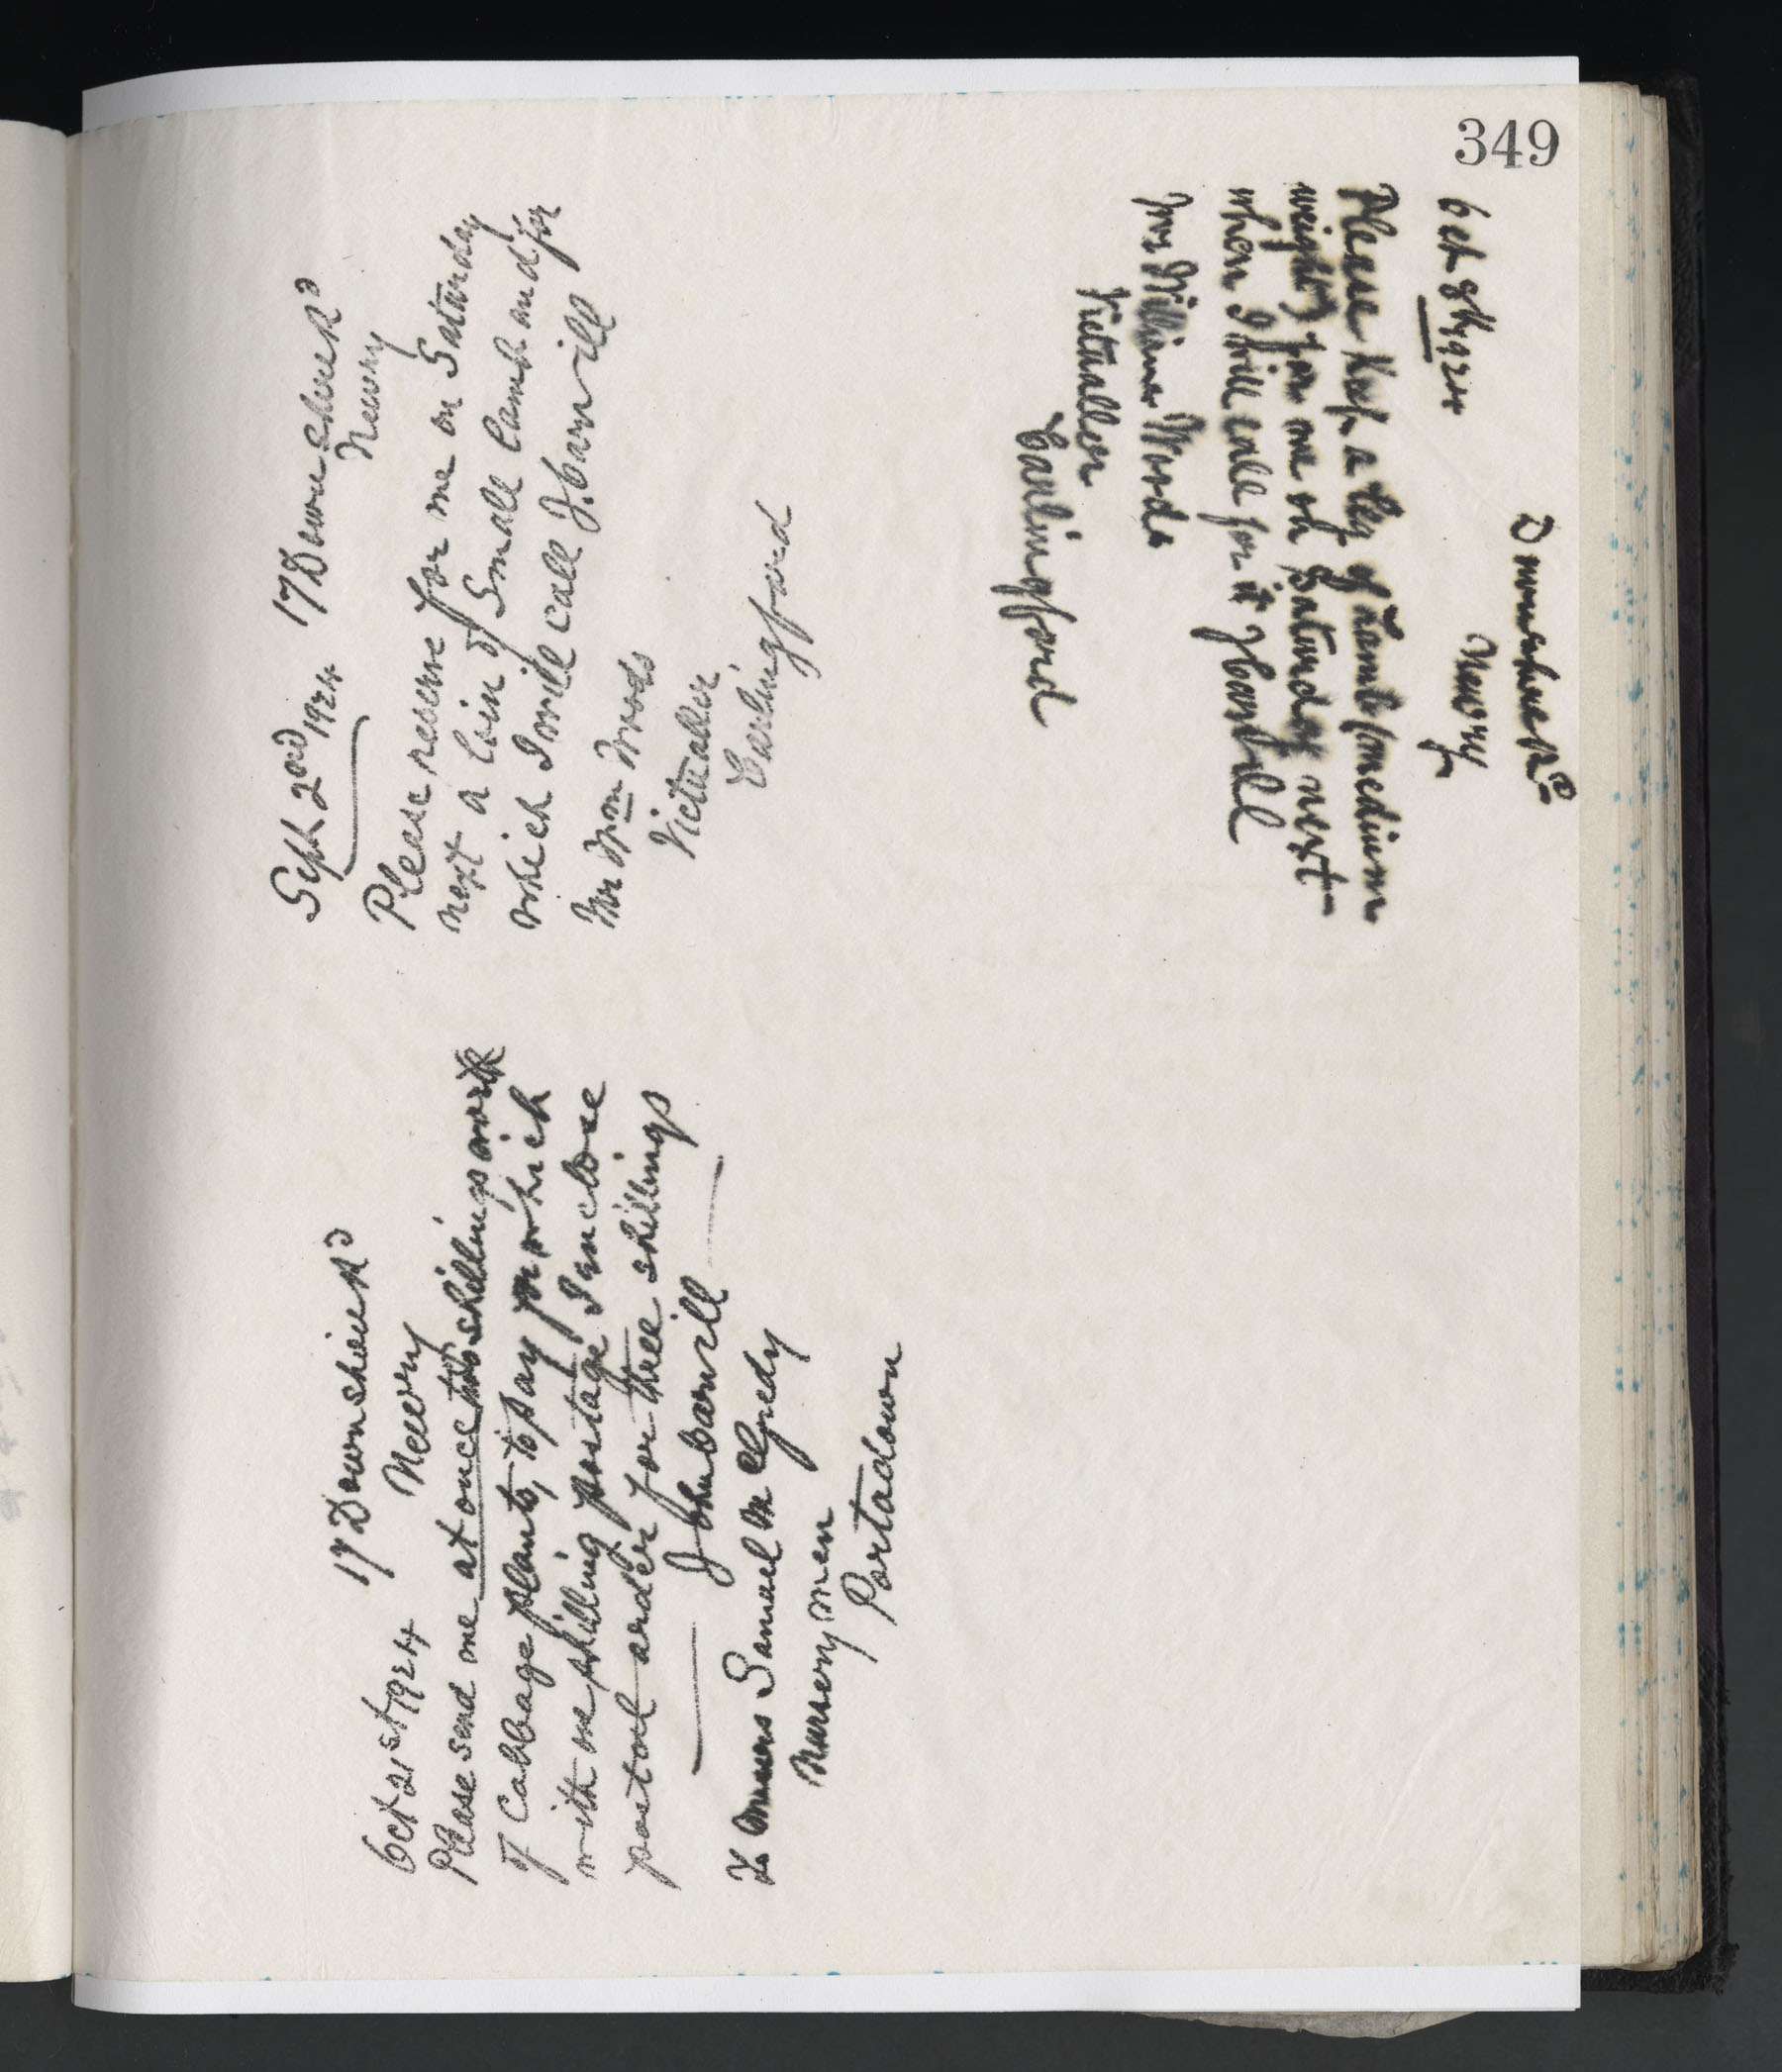 349
Sept 2nd 1924 17 Downshire Rd
Newry
Please reserve for me on Saturday
next a loin of Small Lamb and for
which I will call J. Carvill
Mr Wm Woods
Victualler
Carlingford
Oct 21st 1924 17 Downshire Rd
Newry
Please send me at once two shillings worth
of Cabbage plants, to pay for which
with one shilling postage I enclose
postal order for three shillings
John Carvill
To Messrs Samuel McGredy
Nurserymen
Portadown
Downshire Rd
Newry
Oct 8th 1924
Please keep a leg of Lamb (medium
weight) for me on Saturday next
when I will call for it J Carvill
William Woods
Victualler
Carlingford